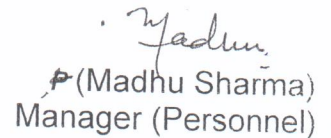 Madhu
(Madhu Sharma)
Manager (Personnel)